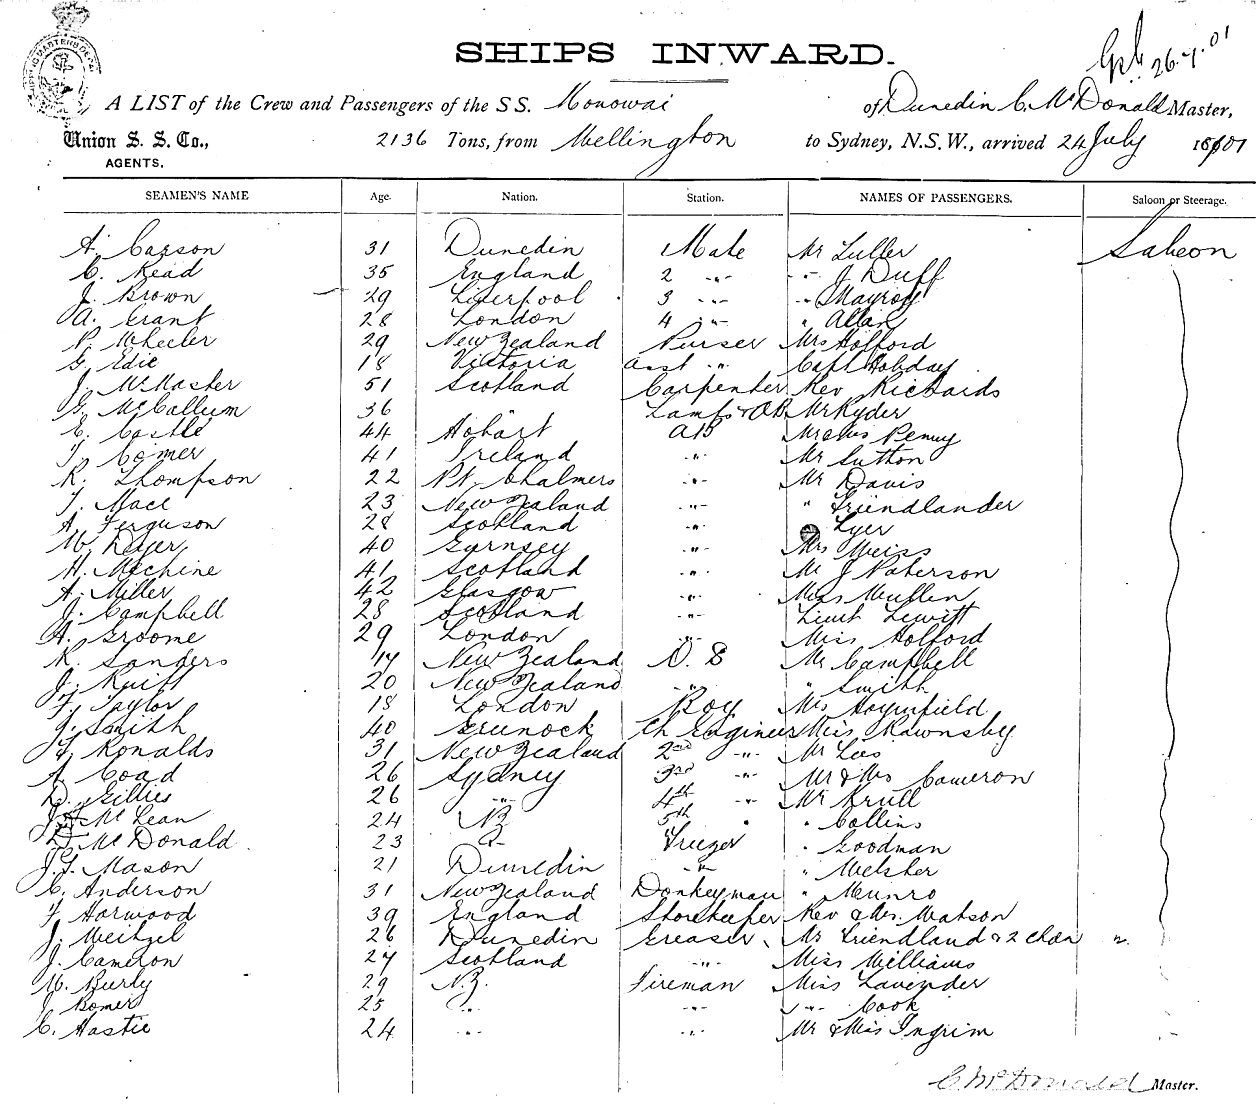 26.7.01
SHIPS INWARD.
A LIST of the Crew and Passengers of the S S. Monowai of Dunedin C. McDonald Master,
Union S. S. Co., 2136 Tons, from Wellington to Sydney, N.S.W., arrived 24 July 1901
AGENTS.
SEAMEN'S NAME Age. Nation. Station. NAMES OF PASSENGERS. Saloon or Steerage.
A. Carson 31 Dunedin Mate Mr Luller Saloon
C. Read 35 England 2 -"- -"- J Duff
J. Brown 29 Liverpool 3 -"- "
A. Grant 28 London 4 -"- " Allan
P. Wheeler 29 New Zealand Purser Mrs Holford
G. Edie 18 Victoria Asst " Capt Hobday
J. McMaster 51 Scotland Carpenter Rev Richards
G. McCallum 36 Lamps & AB Mr Ryder
E. Castle 44 Hobart AB Mr & Mrs Penny
T. Comer 41 Ireland -"- Mr Sutton
R. Thompson 22 Pt. Chalmers -"- Mr Davis
T. Mace 23 New Zealand -"- " Friendlander
A. Ferguson 28 Scotland -"- Lyer
W. Dwyer 40 Guernsey -"- Mrs Weiss
H. Mechine 41 Scotland -"- Mr J Paterson
A. Miller 42 Glasgow -"- Miss Mullen
J. Campbell 28 Scotland -"- Lieut Lewitt
A. Groome 29 London -"- Miss Holford
R. Sanders 17 New Zealand O. S Mr Campbell
J. 20 New Zealand -"- " Smith
F. Taylor 18 London Boy Mrs
J. Smith 40 Greenock Ch Engineer Miss Rawnsby
Ronalds 31 New Zealand 2nd -"- Mr Lees
A. Coad 26 Sydney 3rd -"- Mr & Mrs Cameron
D. Gillies 26 -"- 4th -"- Mr Krull
J. McLean 24 NZ 5th " " Collins
D. McDonald 23 -"- Freezer " Goodman
J. G. Mason 21 Dunedin -"- " Welsher
C. Anderson 31 New Zealand Donkeyman " Munro
F Harwood 39 England Storekeeper Rev & Mrs. Watson
J. Weitzel 26 Dunedin Greaser Mr Friendland & 2 Chdn "
J. Cameron 27 Scotland -"- Miss Williams
W. Burly 29 N.Z. Fireman Miss Lavender
J Bomer 25 " -"- -"- Cook
C. Hastie 24 -"- -"- Mr & Miss Ingrim
C McDonald Master.